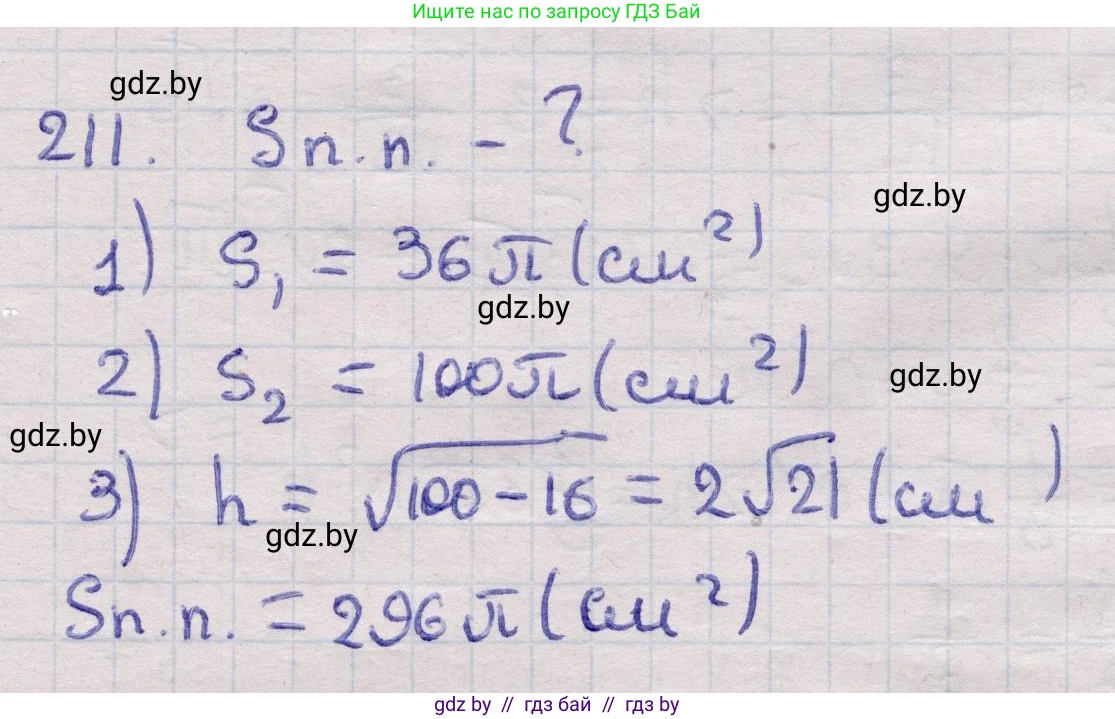 Ищите нас по запросу ГДЗ Бай
gdz.by
211. Sп.п. - ?
gdz.by
1) S₁ = 36π (см²)
gdz.by
2) S₂ = 100π (см²)
gdz.by
gdz.by
3) h = √100-16 = 2√21 (см)
gdz.by
Sп.п. = 296π (см²)
gdz.by // гдз бай // гдз by